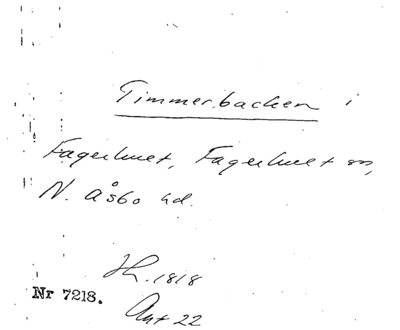 Timmerbacken i
Fagerhult, Fagerhult sn,
N. Åsbo hd.
Hh. 1818
Nr 7218.
Akt 22